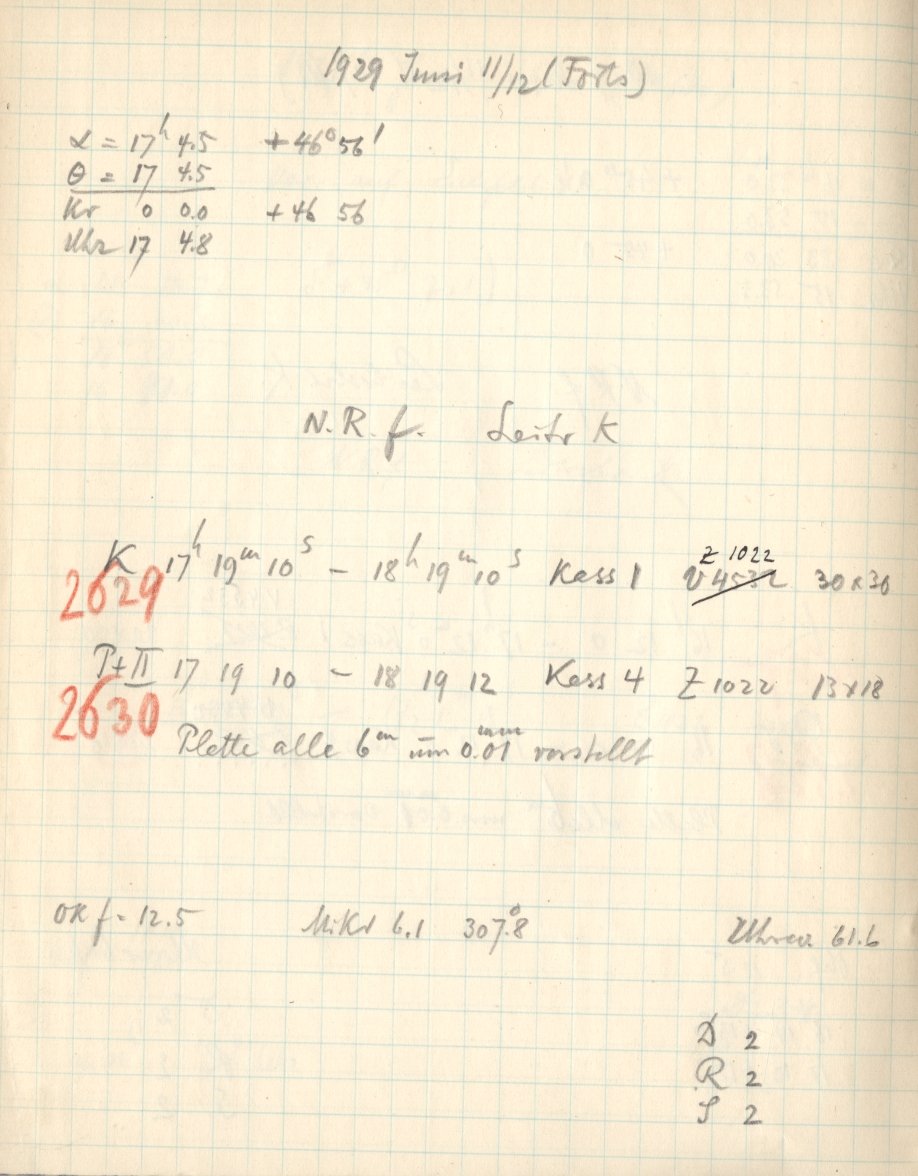 1929 Juni 11/12 (Forts)
α = 17h 4.5 + 46° 56'
θ = 17 4.5
Kr 0 0.0 + 46 56
Uhr 17 4.8
N.R.f. Leitr K
Z 1022
K 17h 19m 10s – 18h 19m 10s Kass 1 V4532 30x30
2629
P+II 17 19 10 – 18 19 12 Kass 4 Z 1022 13x18
2630
Platte alle 6m um 0.01mm verstellt
OK f = 12.5 Mikr 6.1 307.°8 61.6
D 2
R 2
S 2